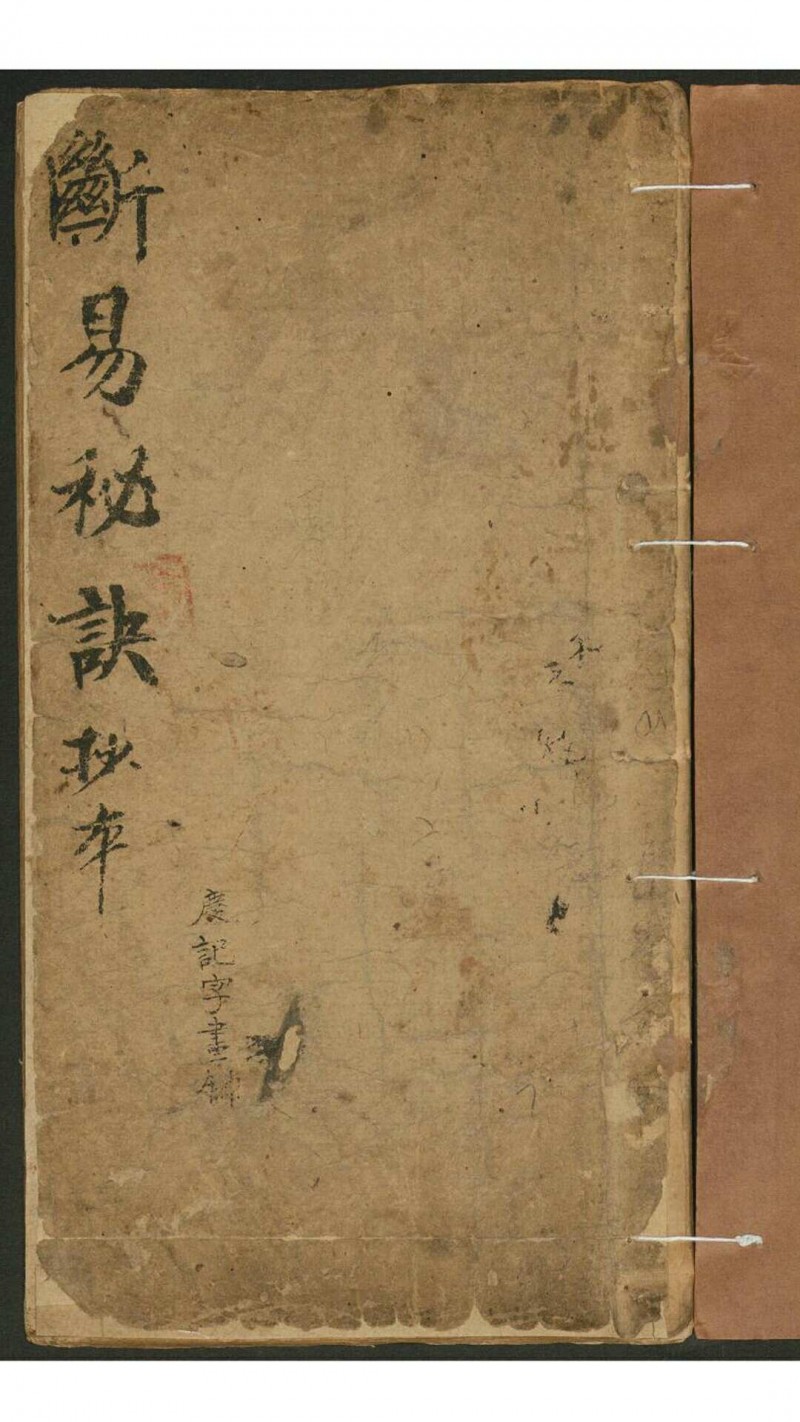 斷易秘訣抄本
慶記字畫舖